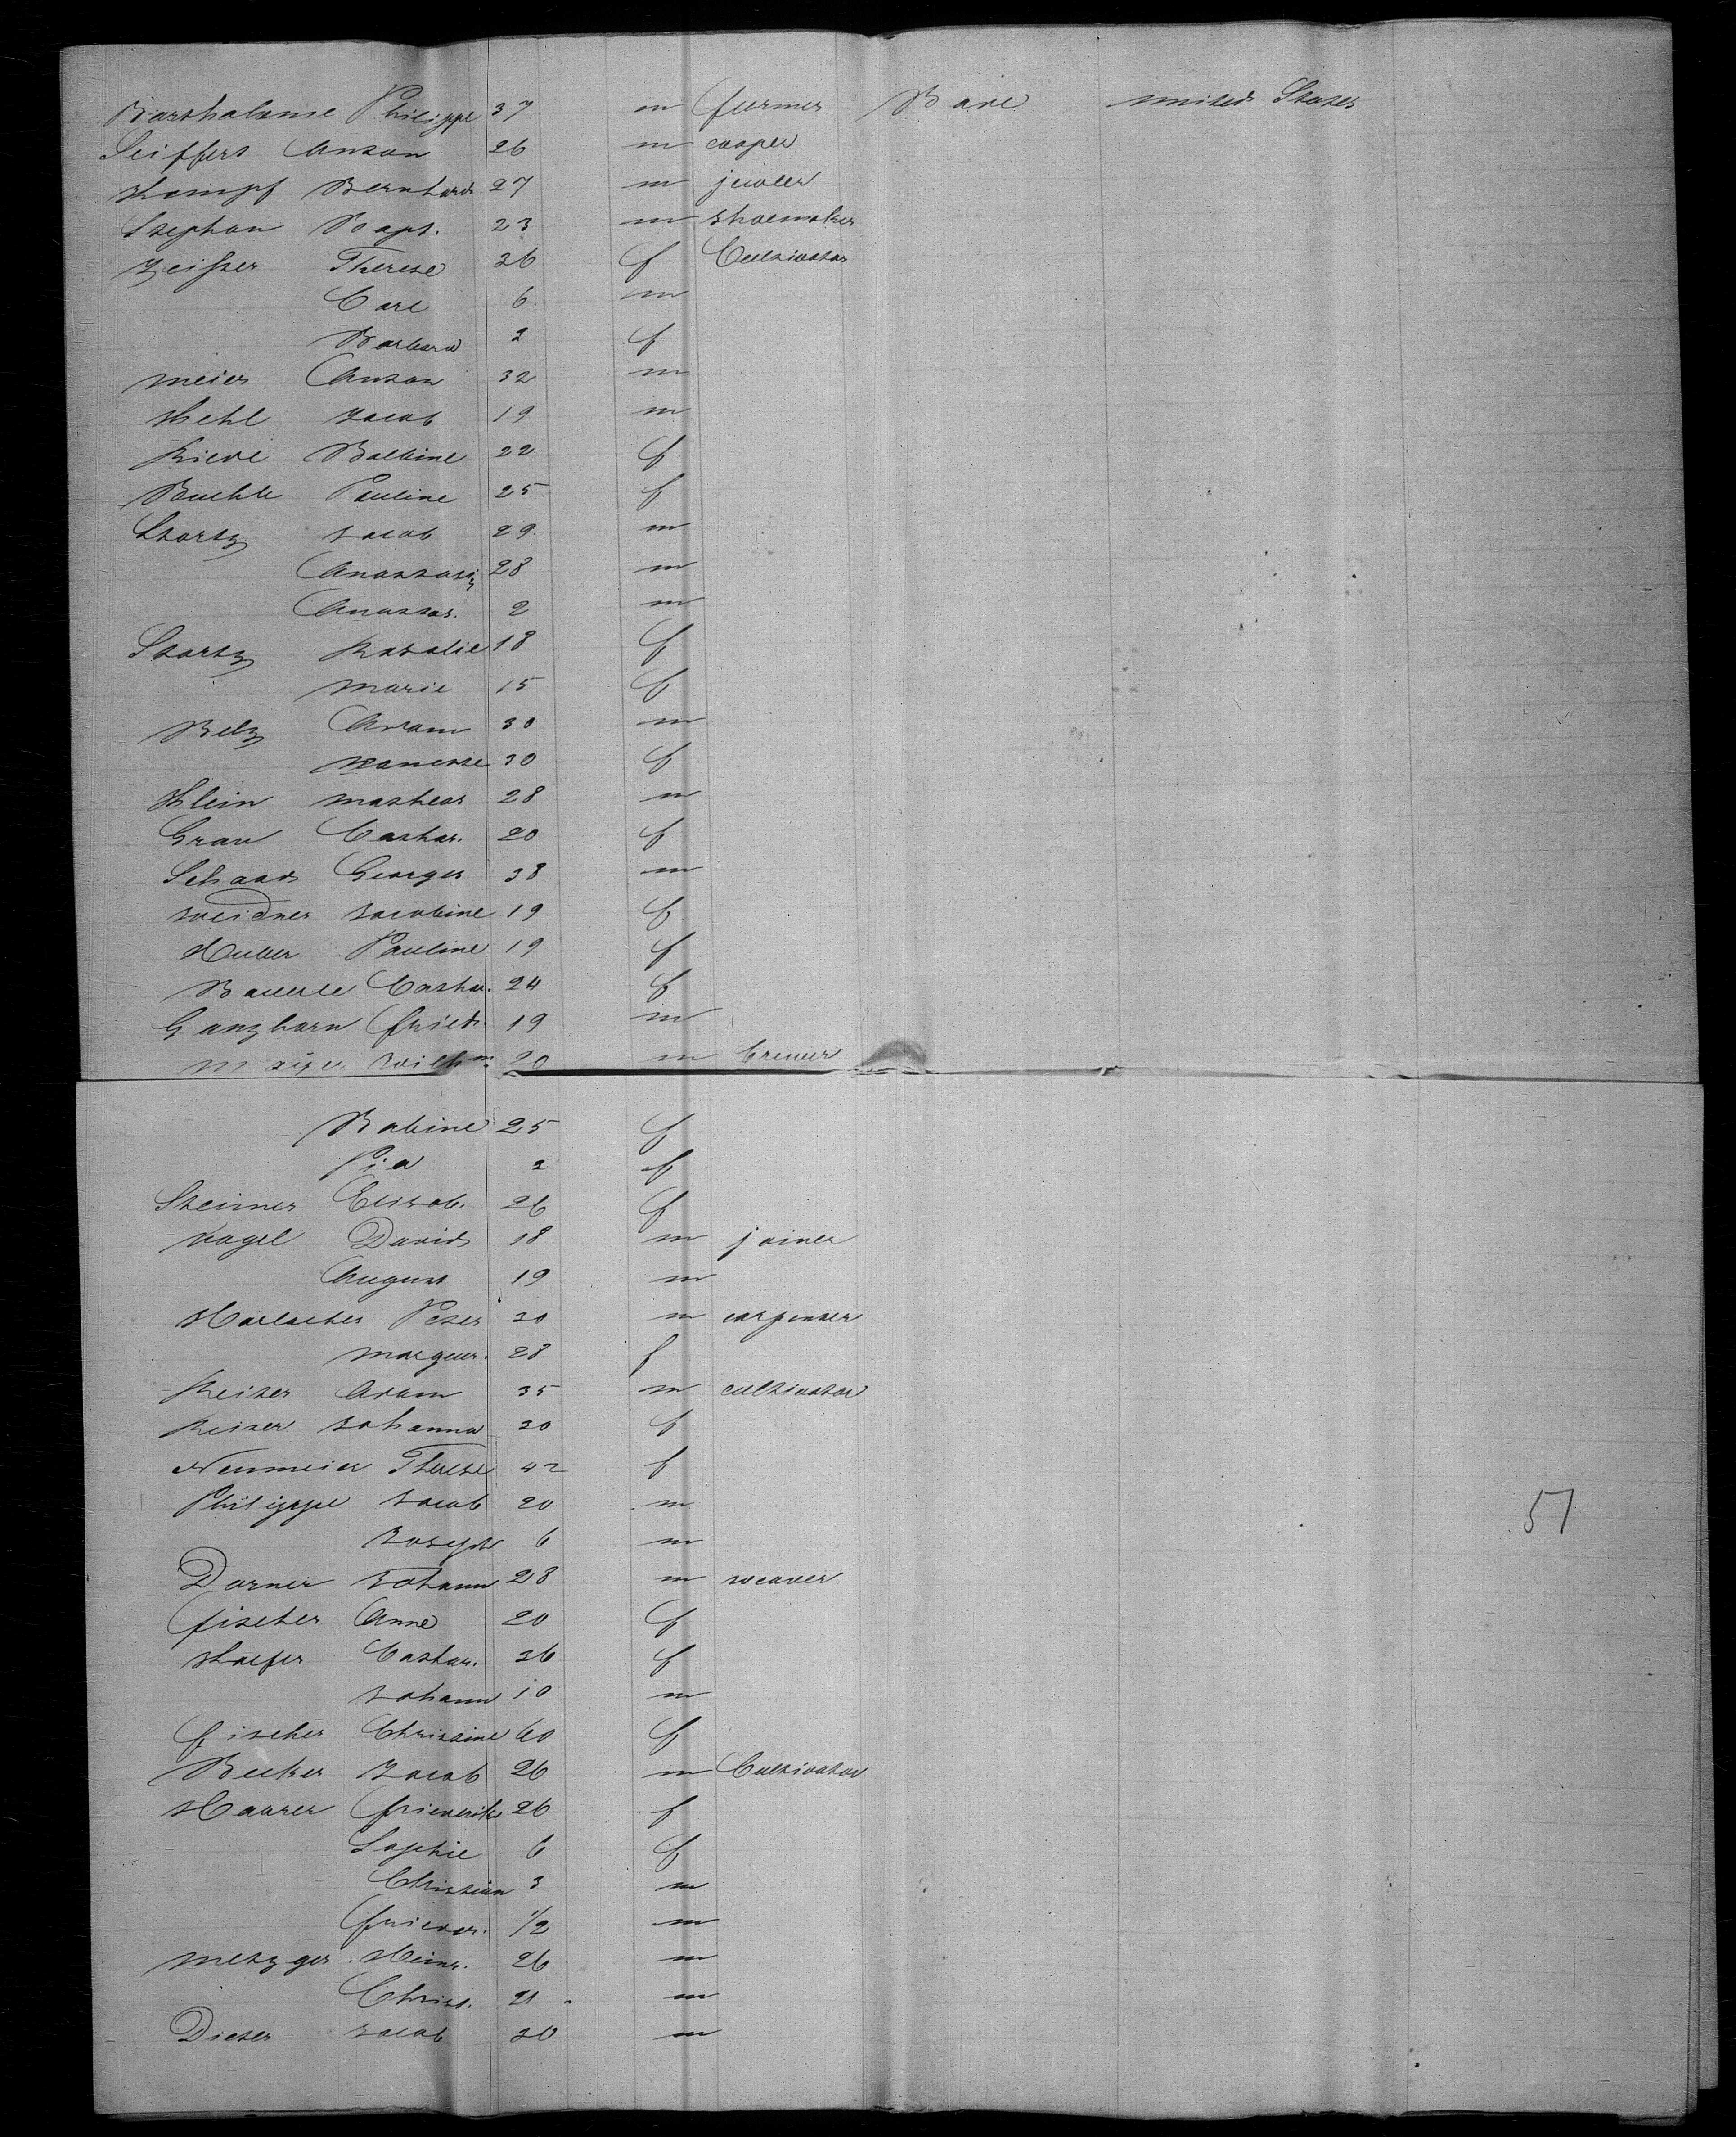 Barthalome Philippe 37 m farmer Bade united States
Seiffert Anton 26 m cooper
Kempf Bernhard 27 m jewler
Stephan Bapt. 23 m shoemaker
Zeisser Therese 36 f Cultivator
Carl 6 m
Barbara 2 f
meier Anton 32 m
Hehl Jacob 19 m
Riede Balbine 22 f
Buehle Pauline 25 f
Stortz Jacob 29 m
Anastasia 28 m
Anastas. 2 m
Stortz Rosalie 18 f
marie 15 f
Belz Adam 30 m
nanette 30 f
Klein matheas 28 m
Grau Cathar. 20 f
Schaad Georges 38 m
weidner Jacobine 19 f
Huber Pauline 19 f
Bauerle Cathar. 24 f
Ganzharn fried. 19 m
maiger wilhm. 20 m brewer
Babine 25 f
Pia 2 f
Steimer Elisab. 26 f
vogel David 18 m joiner
August 19 m
Harlacher Peter 30 m carpenter
margar. 28 f
Reiser Adam 35 m cultivator
Reiser Johanna 20 f
Neumeier Therese 42 f
Philippe Jacob 20 m
Joseph 6 m
Dorner Johann 28 m weaver
fischer Anne 20 f
Haefer Cathar. 36 f
Johann 10 m
fischer Christine 60 f
Becker Jacob 26 m Cultivator
Haurer friederike 26 f
Sophie 6 f
Christian 3 m
frieder. 1/2 m
metzger Heinr. 26 m
Christ. 21 m
Dieter Jacob 30 m
51